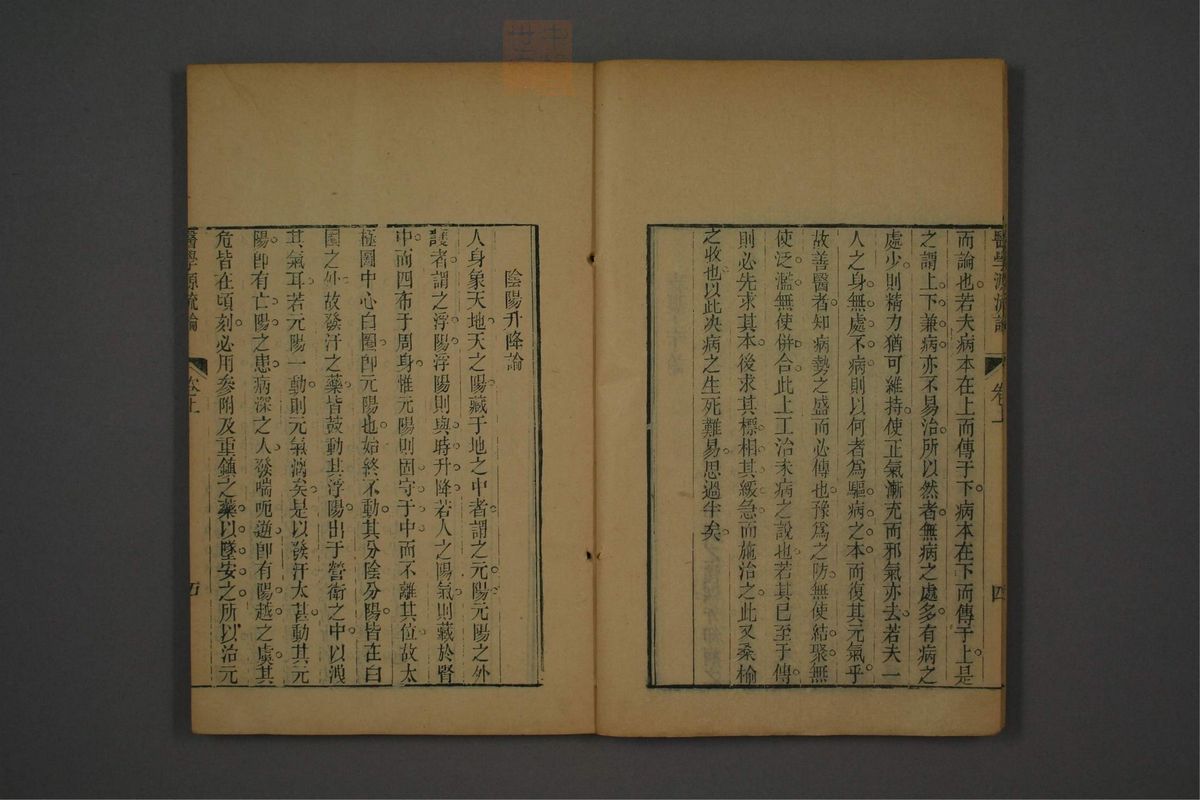 醫學源流論 卷上 四
而論也若夫病本在上而傳于下病本在下而傳于上是
之謂上下兼病亦不易治所以然者無病之處多有病之
處少則精力猶可維持使正氣漸充而邪氣亦去若夫一
人之身無處不病則以何者為驅病之本而復其元氣乎
故善醫者知病勢之盛而必傳也豫為之防無使結聚無
使泛濫無使併合此上工治未病之說也若其已至于傳
則必先求其本後求其標相其緩急而施治之此又桑榆
之收也以此决病之生死難易思過半矣
陰陽升降論
人身象天地天之陽藏于地之中者謂之元陽元陽之外
護者謂之浮陽浮陽則與時升降若人之陽氣則藏於腎
中而四布于周身惟元陽則固守于中而不離其位故太
極圖中心白圈即元陽也始終不動其分陰分陽皆在白
圈之外故發汗之藥皆鼓動其浮陽出于營衛之中以洩
其氣耳若元陽一動則元氣漓矣是以發汗太甚動其元
陽即有亡陽之患病深之人發喘呃逆即有陽越之虞其
危皆在頃刻必用參附及重鎮之藥以墜安之所以治元
醫學源流論 卷上